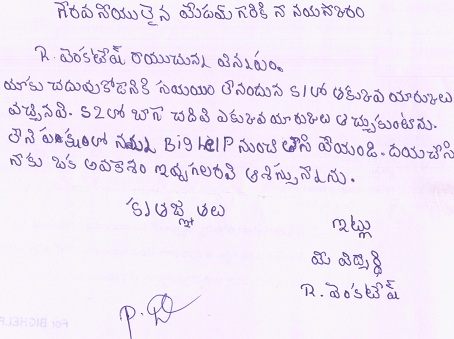 గౌరవనీయులైన మేడమ్ గారికి నా నమస్కారం
R. వెంకటేష్ రాయుచున్న విన్నపం.
నాకు చదువుకోడానికి సమయం లేనందున S1లో తక్కువ మార్కులు
వచ్చినవి. S2లో బాగా చదివి ఎక్కువ మార్కులు తెచ్చుకుంటాను.
లేని పక్షంలో నన్ను BigHelp నుంచి తీసి వేయండి. దయచేసి
నాకు ఒక అవకాశం ఇవ్వగలరని ఆశిస్తున్నాను.
కృతజ్ఞతలు
ఇట్లు
మీ విద్యార్థి
R. వెంకటేష్